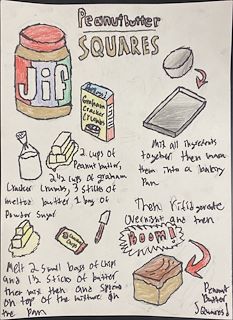 Peanut butter
SQUARES
Jif
Graham
Cracker
Crumbs
2 cups of
Peanut butter,
2 1/2 cups of graham
Cracker Crumbs, 3 sticks of
melted butter 1 bag of
Powder Sugar
Mix all ingredients
together then
them into a baking
Pan.
Then Rifidgerate
Overnight and then
BOOM!
Melt 2 small bags of chips
and 1 1/2 sticks of butter
then mix then and spread
on top of the mixture on
the Pan
Peanut
Butter
Squares!